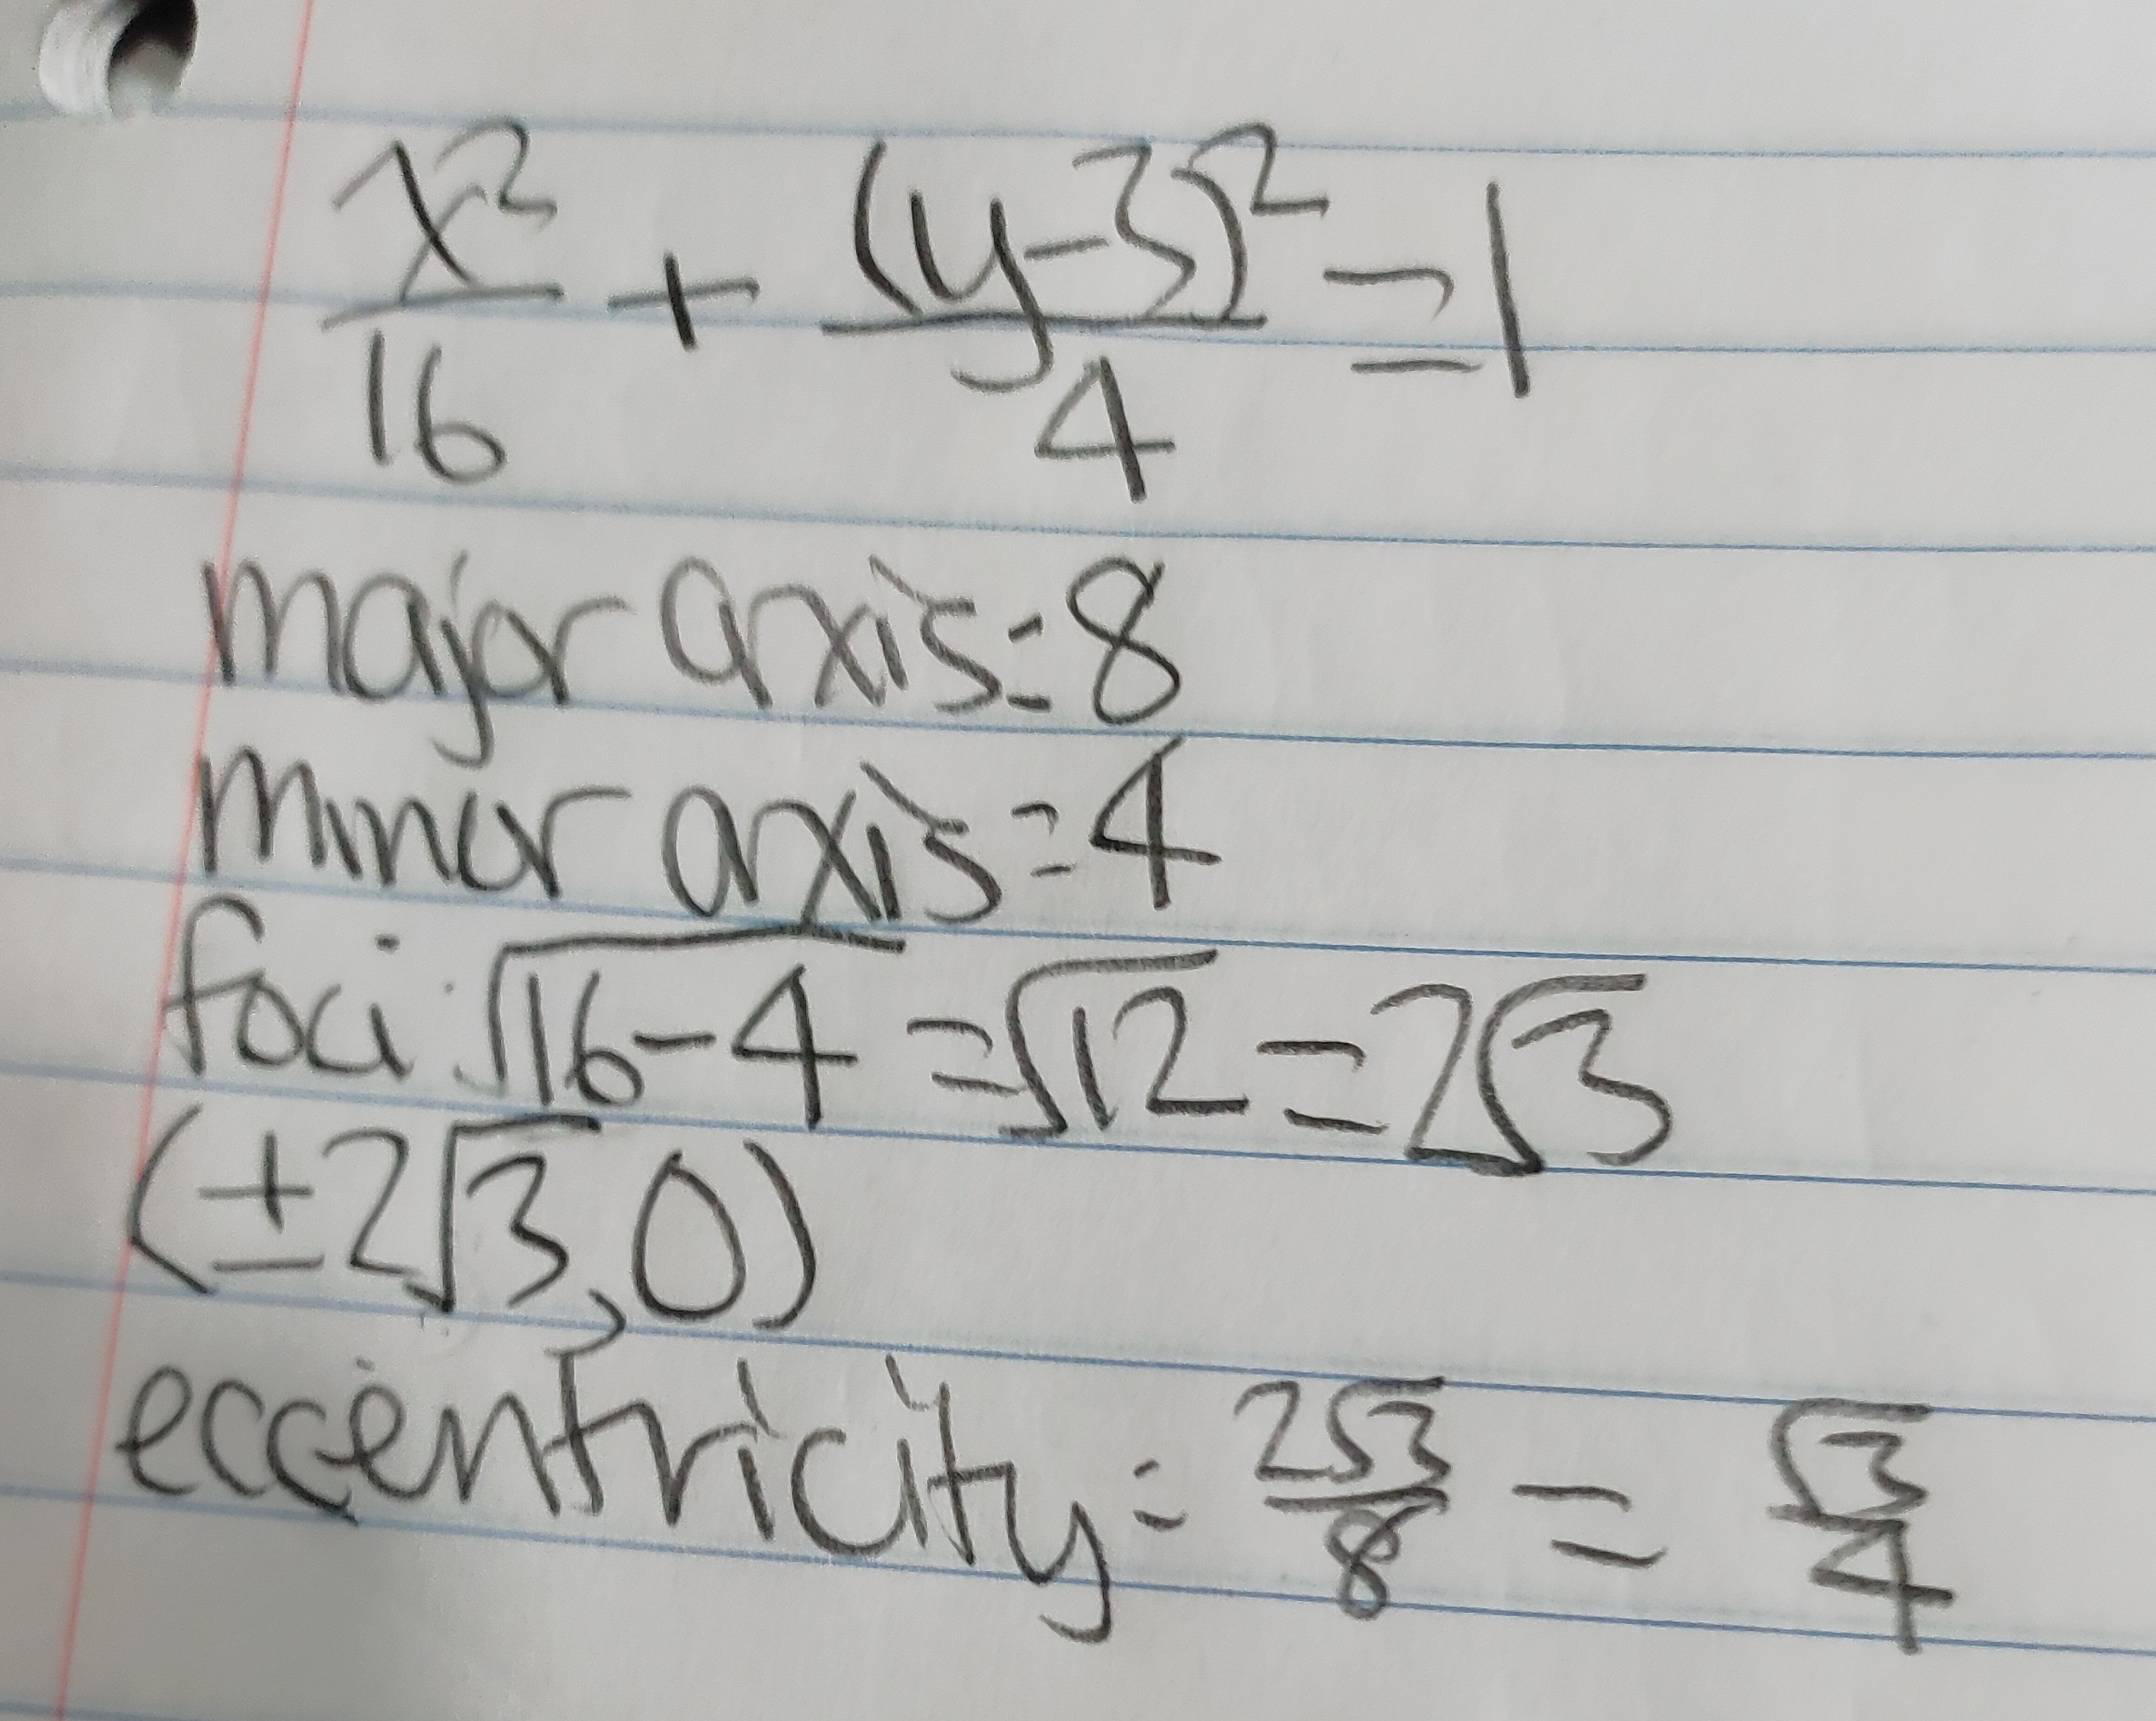 x²/16 + (y-3)²/4 = 1
major axis = 8
minor axis = 4
foci: √(16-4) = √12 = 2√3
(±2√3, 0)
eccentricity = 2√3/8 = √3/4